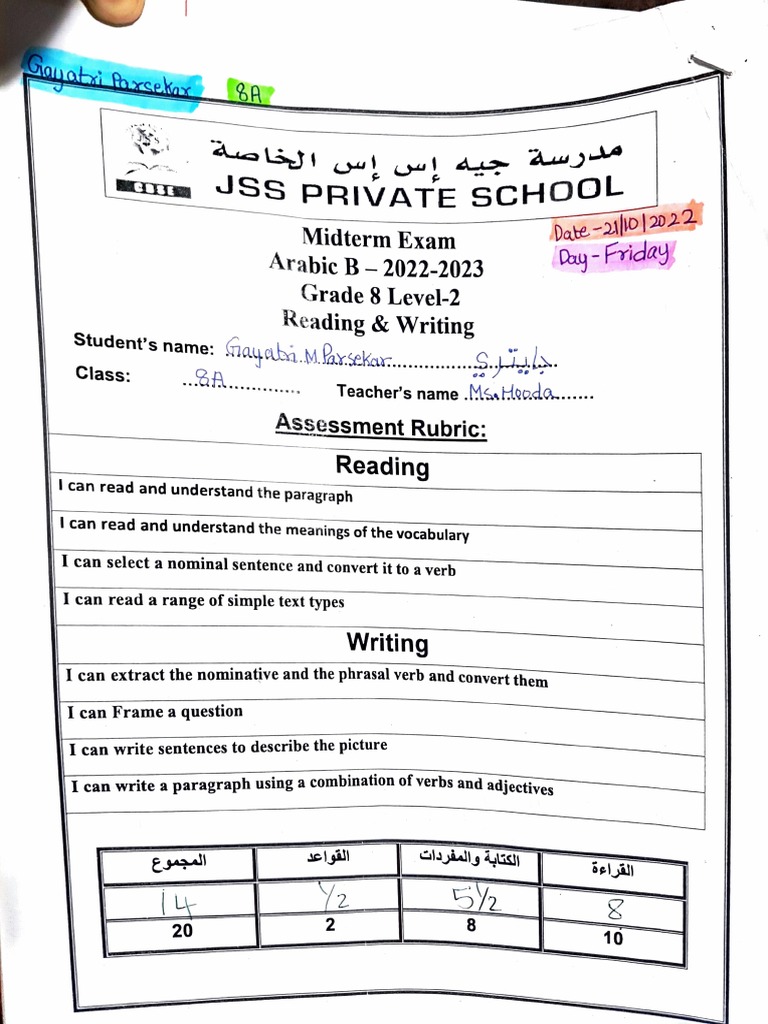 Gayatri Parsekar 8A
مدرسة جيه إس إس الخاصة
CBSE
JSS PRIVATE SCHOOL
Date - 21/10/2022
Midterm Exam
Day - Friday
Arabic B – 2022-2023
Grade 8 Level-2
Reading & Writing
Student's name: Gayatri M Parsekar جايتري
Class: 8A Teacher's name Ms. Hooda
Assessment Rubric:
Reading
I can read and understand the paragraph
I can read and understand the meanings of the vocabulary
I can select a nominal sentence and convert it to a verb
I can read a range of simple text types
Writing
I can extract the nominative and the phrasal verb and convert them
I can Frame a question
I can write sentences to describe the picture
I can write a paragraph using a combination of verbs and adjectives
القراءة الكتابة والمفردات القواعد المجموع
8 5½ ½ 14
10 8 2 20